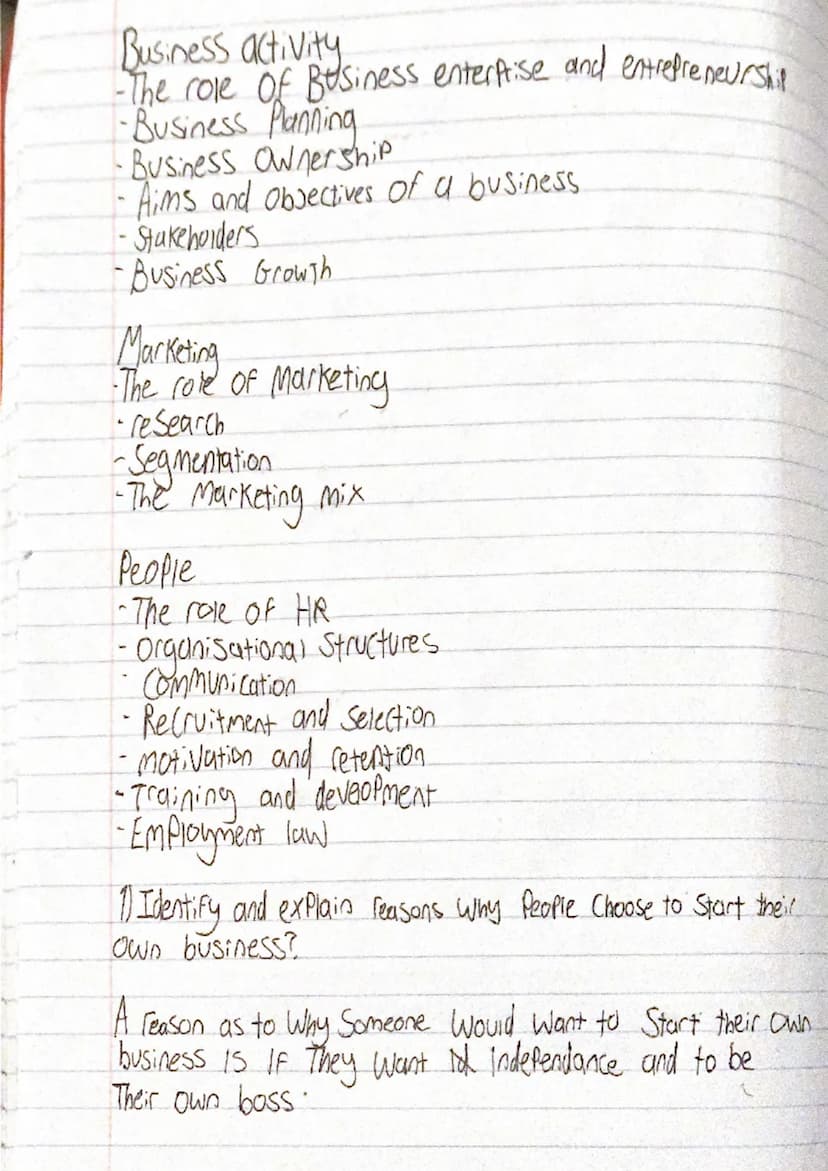 Business activity
-The role of Business enterprise and entrepreneurship
-Business Planning
-Business Ownership
-Aims and objectives of a business
-Stakeholders
-Business Growth
Marketing
-The role of Marketing
-research
-Segmentation
-The Marketing mix
People
-The role of HR
-organisational structures
-Communication
-Recruitment and selection
-motivation and retention
-Training and deveopment
-Employment law
1) Identify and explain reasons why people choose to start their
own business?
A reason as to why someone would want to start their own
business is if they want independance and to be
their own boss.